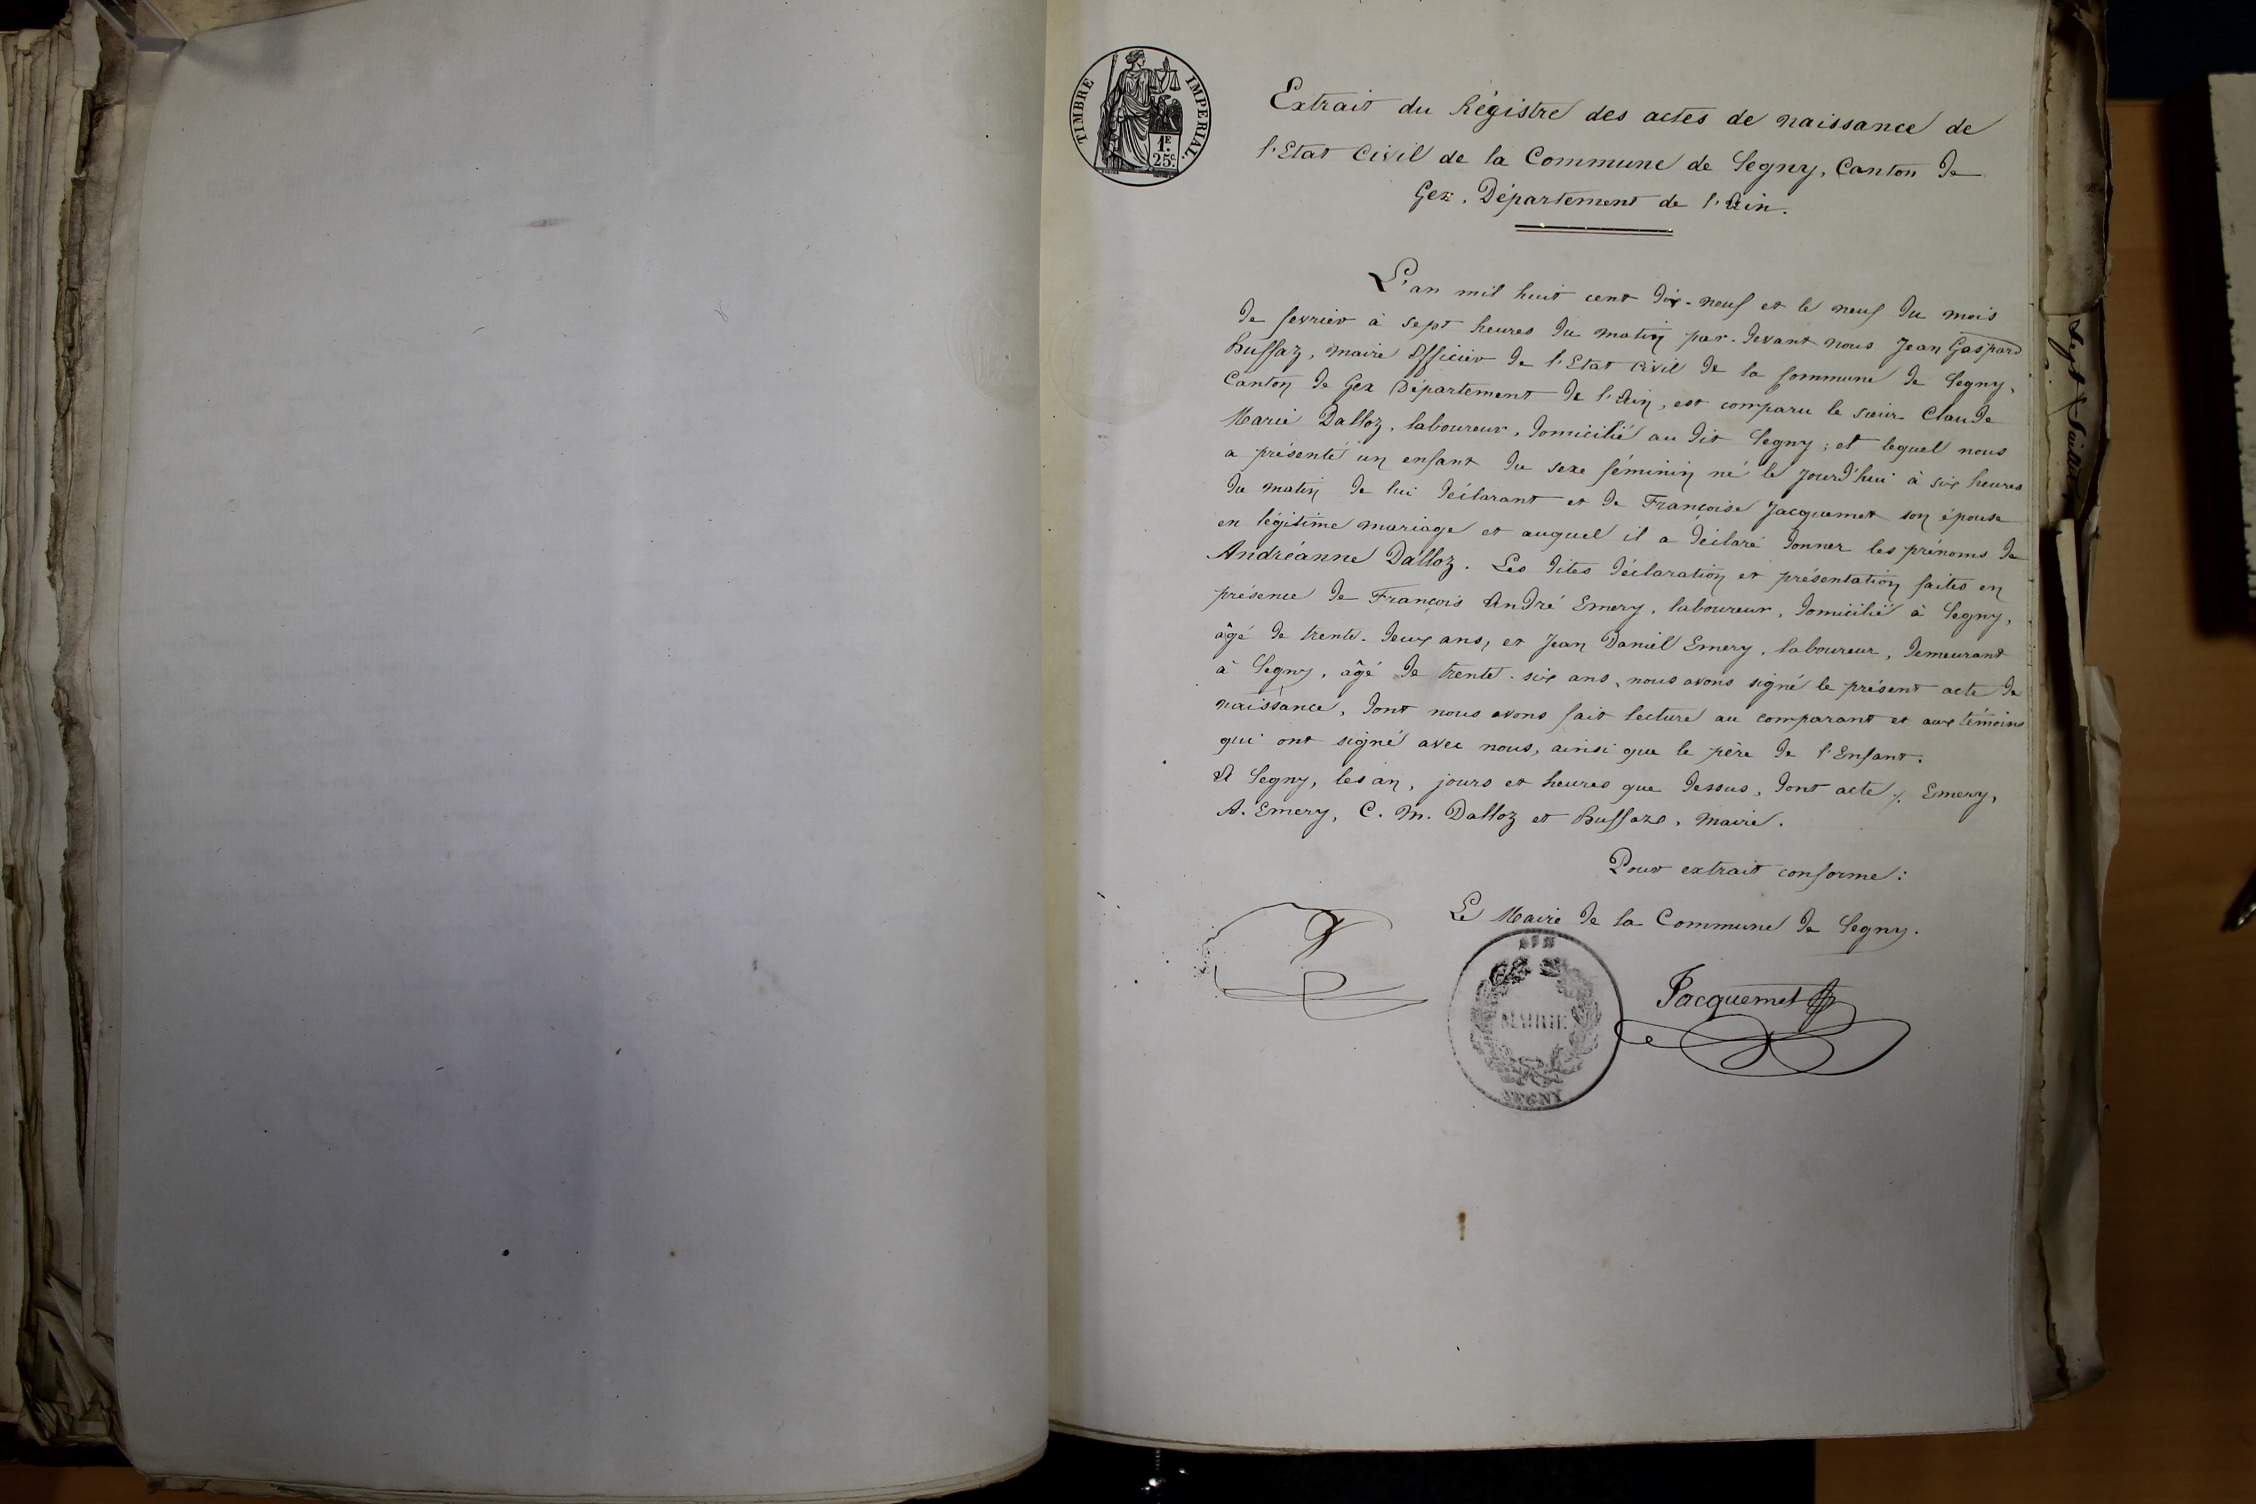 TIMBRE IMPERIAL.
1F.
25c.
Extrait du Régistre des actes de naissance de
l'Etat Civil de la Commune de Segny, Canton de
Gex, Département de l'Ain.
L'an mil huit cent dix-neuf et le neuf du mois
de fevrier à sept heures du matin par-devant nous Jean Gaspard
Buffaz, maire Officier de l'Etat civil de la Commune de Segny,
Canton de Gex Département de l'Ain, est comparu le sieur Claude
Marie Dalloz, laboureur, domicilié au dit Segny; et lequel nous
a présenté un enfant du sexe féminin né le jourd'hui à six heures
du matin de lui déclarant et de Françoise Jacquemet son épouse
en légitime mariage et auquel il a déclaré donner les prénoms de
Andréanne Dalloz. Les dites déclaration et présentation faites en
présence de François André Emery, laboureur, domicilié à Segny,
âgé de trente-deux ans, et Jean Daniel Emery, laboureur, demeurant
à Segny, âgé de trente-six ans, nous avons signé le présent acte de
naissance, dont nous avons fait lecture au comparant et aux témoins
qui ont signé avec nous, ainsi que le père de l'Enfant.
A Segny, les an, jours et heures que dessus, dont acte. Emery,
A. Emery, C. M. Dalloz et Buffaz, maire.
Pour extrait conforme:
Le Maire de la Commune de Segny.
Jacquemet
MAIRIE
SEGNY